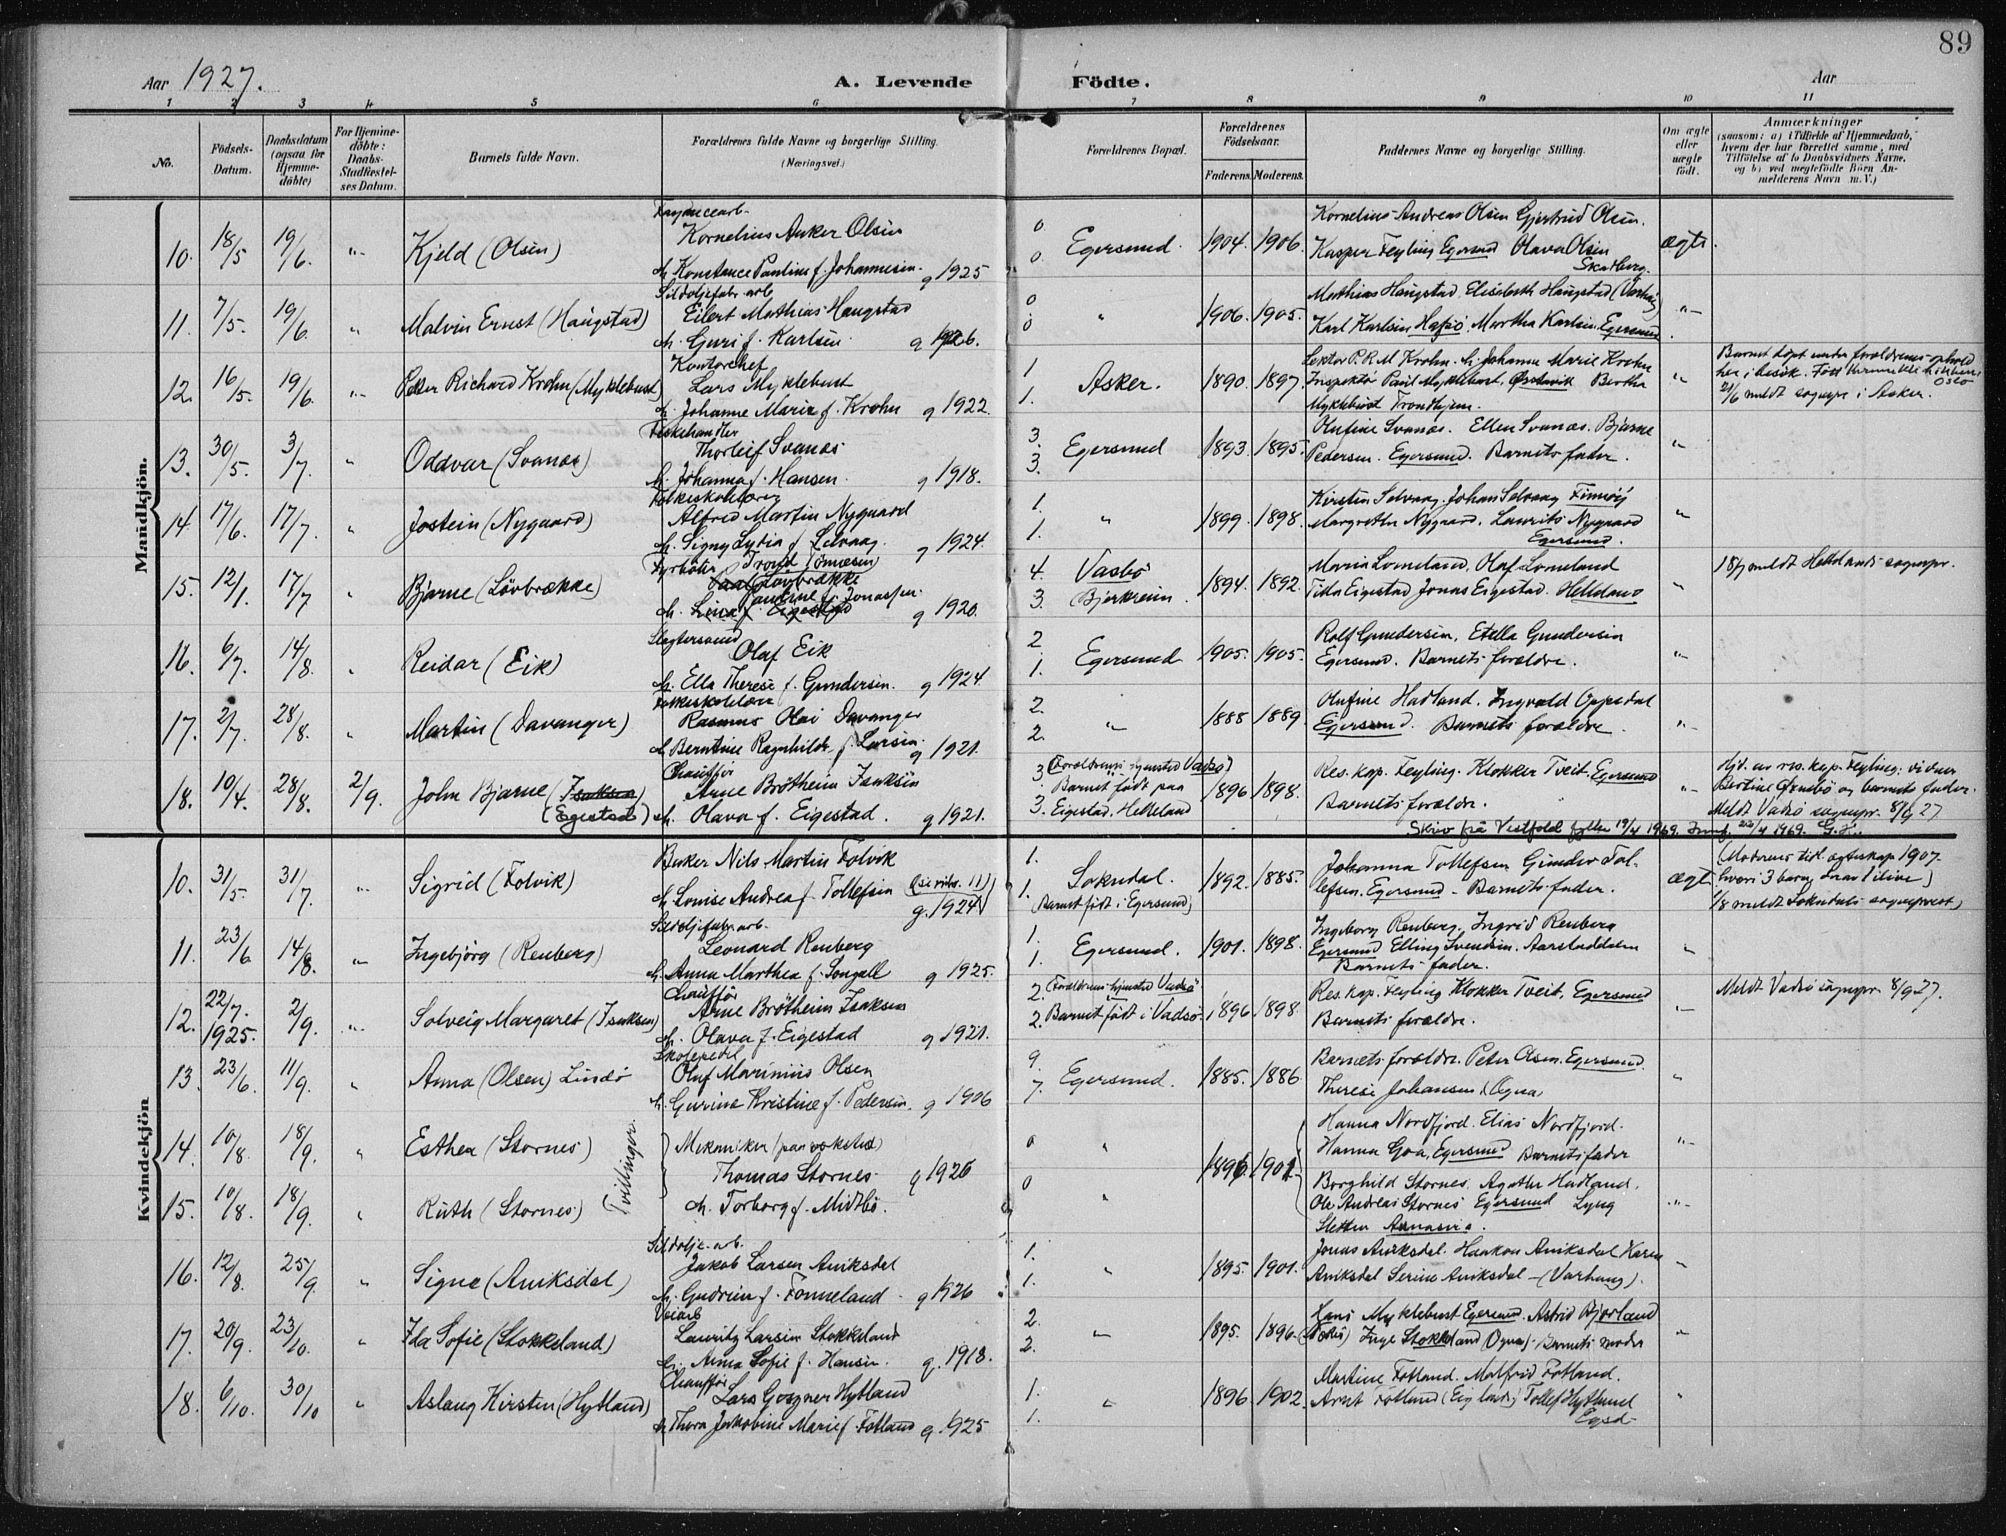 89
Aar 1927.
A. Levende Födte.
Aar
1 2 3 4 5 6 7 8 9 10 11
No.
Födsels-Datum.
Daabsdatum (ogsaa for Hjemme-döbte)
For Hjemme-döbte: Daabs-Stadfestel-ses Datum.
Barnets fulde Navn.
Forældrenes fulde Navne og borgerlige Stilling. (Næringsvei.)
Forældrenes Bopæl.
Forældrenes Födselsaar.
Faderens. Moderens.
Faddernes Navne og borgerlige Stilling.
Om ægte eller uægte födt.
Anmærkninger (saasom: a) i Tilfælde af Hjemmedaab, hvem der har forrettet samme, med Tilföielse af to Daabsvidners Navne, og b) ved uegtefödte Börn An-melderens Navn m. V.)
Mandkjön.
10. 18/5 19/6. Kjeld (Olsen)
Fayancearb.
Kornelius Anker Olsen
h. Konstance Pauline f. Johannesen. g 1925
0 0 Egersund. 1904. 1906.
Kornelius Andreas Olsen Gjertrud Olsen.
Kasper Feyling Egersund Olava Olsen
ægte.
11. 7/5. 19/6 Malvin Ernst (Haugstad)
Sildoljefabr. arb
Eilert Mathias Haugstad
h. Guri f. Karlsen. g 1926.
0 0 " 1906. 1905.
Mathias Haugstad Elisabeth Haugstad (Varhaug)
Karl Karlsen Martha Karlsen Egersund
12. 16/5. 19/6. Peter Richard Krohn (Myklebust)
Kontorchef
Lars Myklebust
h. Johanne Marie f. Krohn g 1922.
1 1. Asker. 1890. 1897.
Lektor P. R. M. Krohn. h. Johanne Marie Krohn
Inspektø Paul Myklebust, Berthe
Myklebust Trondhjem.
Barnet döpt under foreldrenes ophold
her i besök. Oslo
21/6 meldt sognepr i Asker.
13. 30/5. 3/7. Oddvar (Svanæs)
Fiskehandler
Thorleif Svanæs
h. Johanna f. Hansen. g 1918.
3. 3. Egersund 1893. 1895.
Olufine Svanæs. Ellen Svanæs. Bjarne
Pedersen. Egersund. Barnets fader.
14 17/6. 17/7. Jostein (Nygaard)
Folkeskolelærer
Alfred Martin Nygaard
h. Signy Lydia f. Selvaag. g 1924.
1. 1. " 1899. 1898.
Kirsten Selvaag. Johan Selvaag Finnöy
Margrethe Nygaard. Laurits Nygaard
Egersund.
15. 12/1. 17/7 Bjarne (Lövbrække)
Fyrböter Trond Tönnesen
Lövbrække
Pauline f. Jonassen.
h. Lina f. Eigestad g 1920.
4. 3. Vasbö Bjerkreim. 1894. 1892.
Maria Lomeland. Olaf Lomeland
Tilla Eigestad Jonas Eigestad. Helleland
18/7 meldt Hellelands sognepr.
16. 6/7. 14/8. Reidar (Eik)
Slagtersvend
Olaf Eik
h. Ella Therese f. Gundersen. g 1924
2 1. Egersund 1905. 1905.
Rolf Gundersen, Etella Gundersen
Egersund. Barnets forældre.
17. 2/7. 28/8. Martin (Davanger)
Folkeskolelærer
Rasmus Olai Davanger
h. Berntine Ragnhilde f. Larsen. g 1921.
2. 2. " 1888 1889.
Olufine Hadland. Ingvald Oppedal
Egersund. Barnets forældre.
18. 10/4. 28/8. 2/9. John Bjarne (Isaksen) (Eigestad)
Chauffør
Arne Brötheim Isaksen
h. Olava f. Eigestad. g 1921.
3 3. (Forældrenes hjemsted Vadsö)
Barnet födt paa
Eigestad, Helleland 1896 1898.
Res. kap. Feyling. Klokker Tveit. Egersund
Barnets forældre.
Hjd. av res. kap. Feyling: vidner
Bertine og barnets fader.
Meldt Vadsö sognepr. 8/9 27
Skriv frå Vestfold fylke 19/4 1969. 1969. G. H.
Kvindekjön
10. 31/5. 31/7. Sigrid (Folvik)
Baker Nils Martin Folvik
h. Lovise Andrea f. Tollefsen (se rubr. 11)
g. 1924
1. 1. Sokndal. (Barnet födt i Egersund) 1892. 1885.
Johanna Tollefsen Gunder Tol-
lefsen. Egersund - Barnets fader.
ægte
(Moderens tidl. ægteskap 1907.
hvori 3 barn, hvorav 1 ilive)
1/8 meldt Sokndals sogneprest)
11. 23/6 14/8. Ingebjörg (Renberg)
Sildoljefabr. arb.
Leonard Renberg
h. Anna Marthea f. g 1925.
1. 1. Egersund. 1901. 1898.
Ingeborg Renberg, Ingrid Renberg
Egersund Elling Svendsen. Aarstaddalen
Barnets fader.
12. 22/7. 1925. 2/9. Solveig Margaret (Isaksen)
Chauffør
Arne Brötheim Isaksen
h. Olava f. Eigestad g 1921.
2. 2. (Forældrenes hjemsted Vadsö
Barnet födt i Vadsö. 1896 1898.
Res. kap. Feyling Klokker Tveit, Egersund
Barnets forældre.
Meldt Vadsö sognepr. 8/9 27.
13. 23/6. 11/9. Anna (Olsen) Lindö
Skolepedel
Oluf Marinius Olsen
h. Gurine Kristine f. Pedersen. g 1906
9. 7. Egersund. 1885. 1886
Barnets forældre. Peter Olsen. Egersund.
Therese Johansen (Ogna)
14. 10/8. 18/9. Esther (Stornes)
Tvillinger.
Mekaniker (paa verksted)
Thomas Stornes g 1926
h. Torborg f. Midtbö.
0 " 1896. 1901
Hanna Nordfjord. Elias Nordfjord.
Hanna Goa, Egersund Barnets fader
15. 10/8. 18/9. Ruth (Stornes)
0 "
Borghild Stornes. Agathe Hadland.
Ole Andreas Stornes Egersund Lyng
16. 12/8. 25/9. Signe (Aniksdal)
Sildolje. arb.
Jakob Larsen Aniksdal
h. Gudrun f. Fonneland. g 1926
1. 1. 1895. 1901.
Jonas Aniksdal. Haakon Aniksdal Karen
Aniksdal Serine Aniksdal - (Varhaug).
17. 20/9. 23/10. Ida Sofie (Stokkeland)
Veiarb
Lauritz Larsen Stokkeland
h. Anna Sofie f. Hansen. g. 1918.
2. 2. " 1895. 1896.
Hans Myklebust Egersund. Astrid Bjorland
Inge Stokkeland (Ogna) Barnets moder
18. 6/10. 30/10 Aslaug Kirsten (Hytland)
Chauffør
Lars Gosner Hytland
h. Thora Jakobine Marie f. Fotland g. 1925
1. 1. " 1896 1902.
Martine Fotland. Malfrid Fotland.
Arnt Fotland (Eigeland) Tollef Hytland
Egsd.